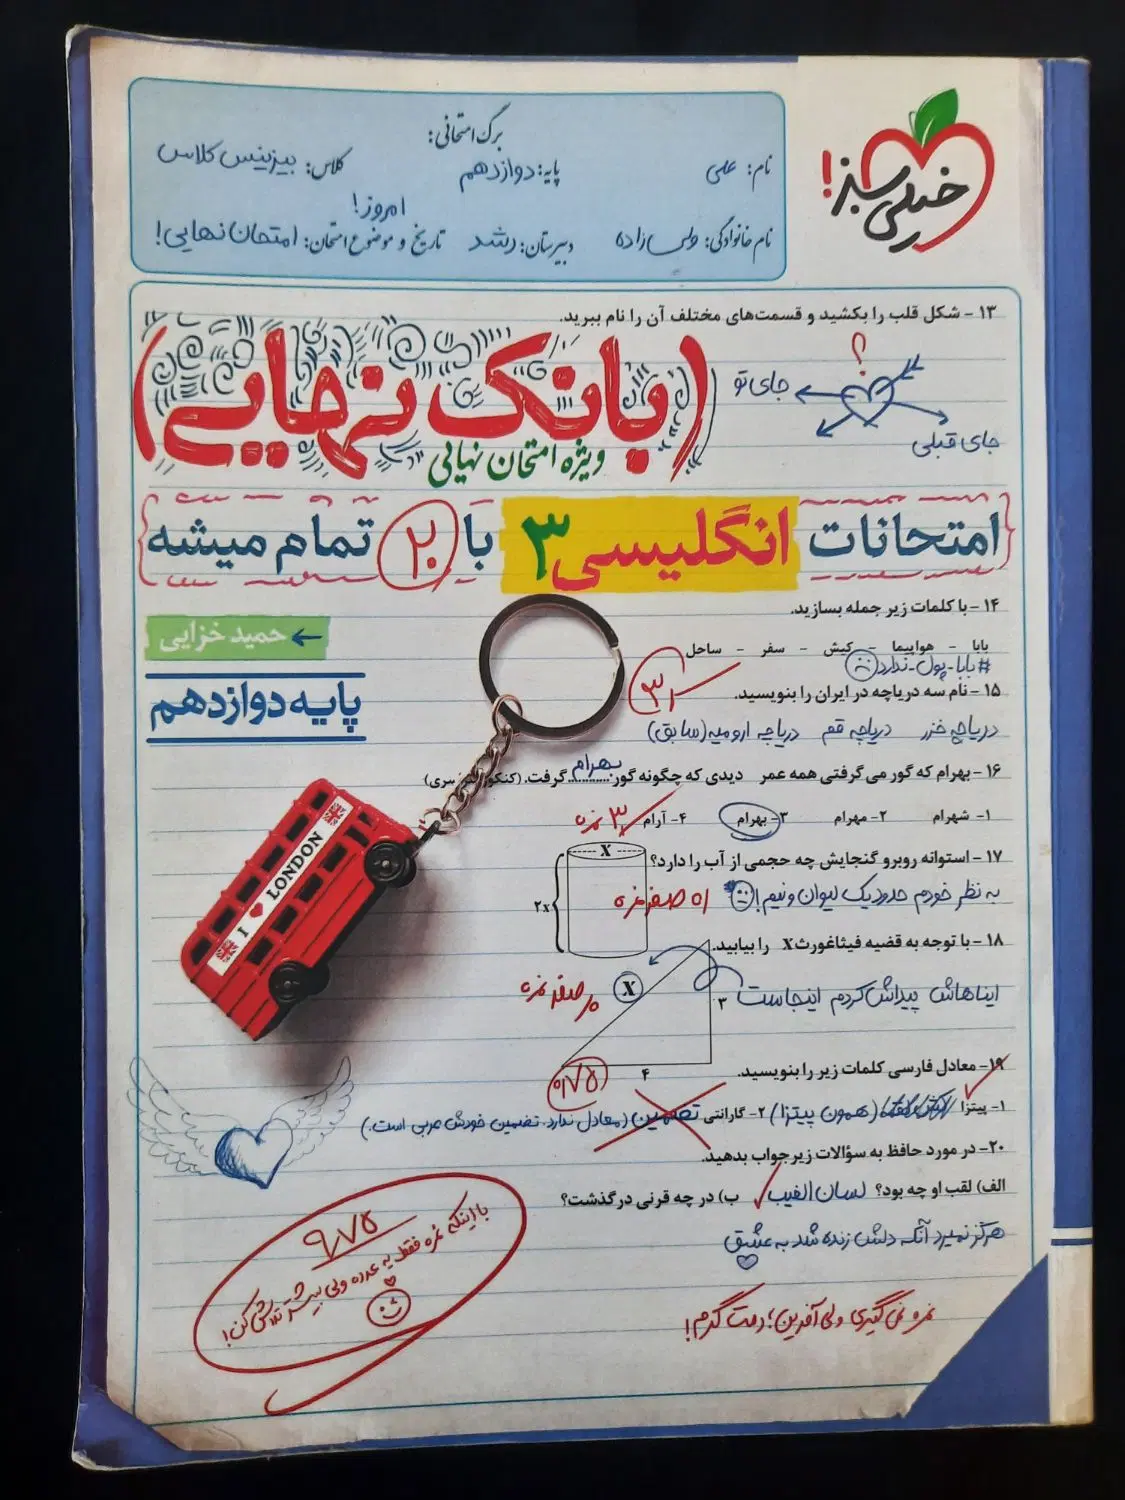 خیلی سبز!
برگ امتحانی:
نام: علی پایه: دوازدهم کلاس: بیزینس کلاس
امروز!
نام خانوادگی: ولی‌زاده دبیرستان: رشد تاریخ و موضوع امتحان: امتحان نهایی!
۱۳ - شکل قلب را بکشید و قسمت‌های مختلف آن را نام ببرید.
؟
جای تو
جای قبلی
(بانک نهایی)
ویژه امتحان نهایی
{امتحانات انگلیسی ۳ با ۲۰ تمام میشه}
۱۴ - با کلمات زیر جمله بسازید.
← حمید خزایی
بابا - هواپیما - کیش - سفر - ساحل
#بابا_پول_ندارد
پایه دوازدهم
۱۵ - نام سه دریاچه در ایران را بنویسید.
دریاچه خزر دریاچه قم دریاچه ارومیه (سابق)
۱۶ - بهرام که گور می گرفتی همه عمر دیدی که چگونه گور بهرام گرفت.
۱- شهرام ۲- مهرام ۳- بهرام ۴- آرام
۳ نمره
۱۷ - استوانه روبرو گنجایش چه حجمی از آب را دارد؟
X
۲x
به نظر خودم حدود یک لیوان و نیم!
صفر نمره
۱۸ - با توجه به قضیه فیثاغورث X را بیابید.
ایناهاش پیداش کردم اینجاست
X
۳
۴
صفر نمره
I ♥ LONDON
۱۹- معادل فارسی کلمات زیر را بنویسید.
۰/۷۵
۱- پیتزا (همون پیتزا) ۲- گارانتی تضمین (معادل ندارد. تضمین خودش عربی است.)
۲۰- در مورد حافظ به سؤالات زیر جواب بدهید.
الف) لقب او چه بود؟ لسان الغیب ب) در چه قرنی درگذشت؟
هرگز نمیرد آنکه دلش زنده شد به عشق
۹/۷۵
با اینکه نمره فقط یه عدده ولی بیشتر تلاش کن!
نمره نمی‌گیری ولی آفرین؛ دمت گرم!